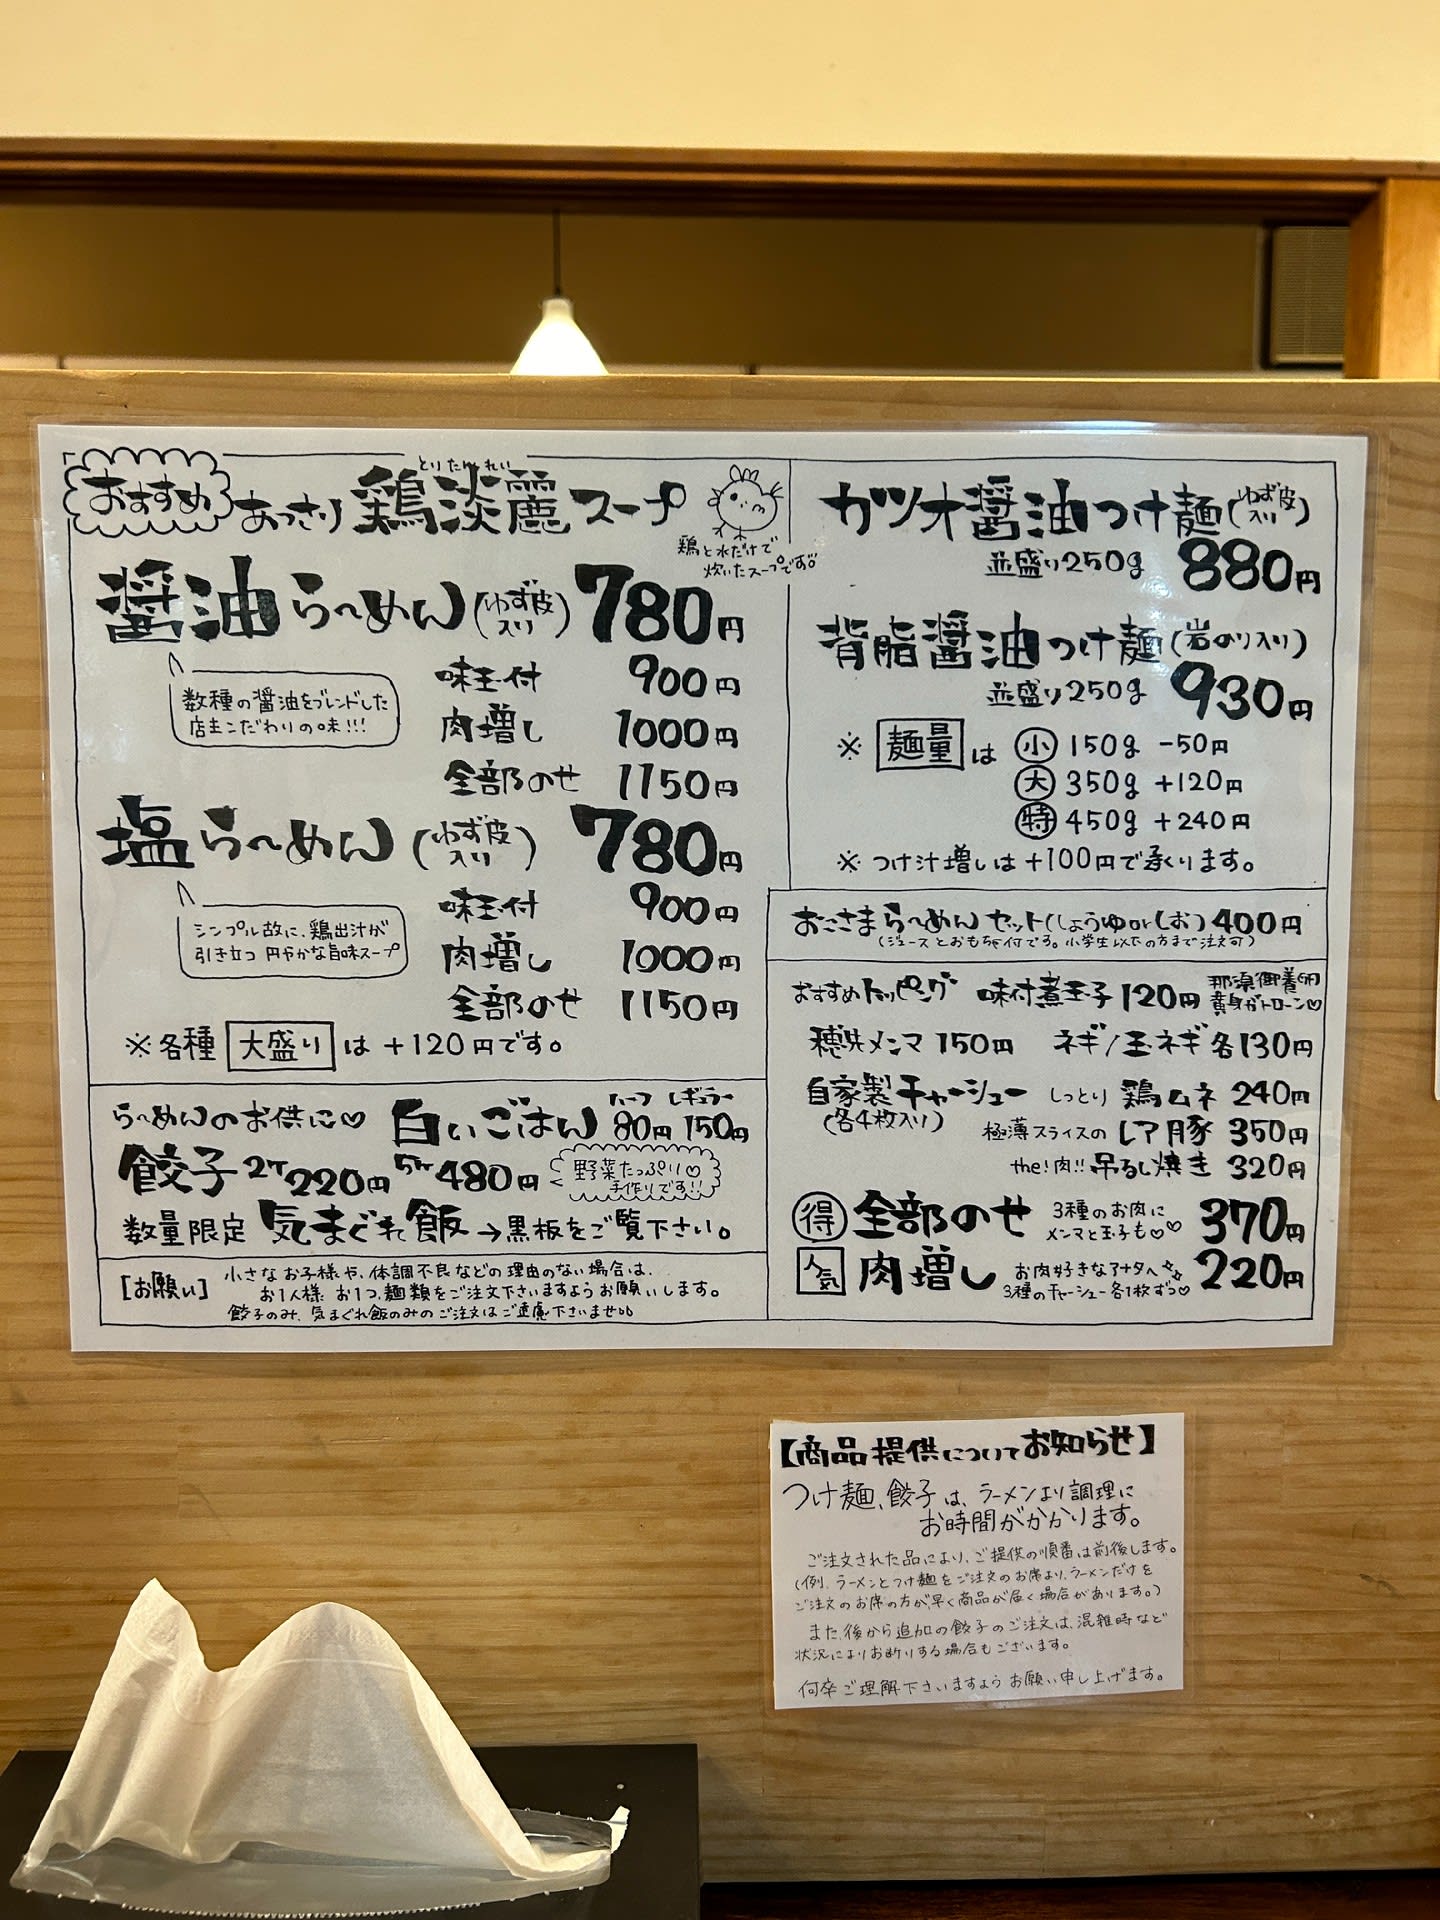 おすすめ
あっさり鶏淡麗スープ
とりたんれい
鶏と水だけで
炊いたスープです。
醤油ら〜めん(ゆず皮入り) 780円
味玉付 900円
肉増し 1000円
全部のせ 1150円
数種の醤油をブレンドした
店主こだわりの味!!!
塩ら〜めん(ゆず皮入り) 780円
味玉付 900円
肉増し 1000円
全部のせ 1150円
シンプル故に、鶏出汁が
引き立つ円やかな旨味スープ
※各種 大盛り は +120円です。
ら〜めんのお供に♡ 白いごはん ハーフ 80円 レギュラー 150円
餃子 2ケ 220円 5ケ 480円
野菜たっぷり♡
手作りです!!
数量限定 気まぐれ飯→黒板をご覧下さい。
[お願い] 小さなお子様や、体調不良などの理由のない場合は、
お1人様 お1つ、麺類をご注文下さいますようお願いします。
餃子のみ、気まぐれ飯のみのご注文はご遠慮下さいませ。
カツオ醤油つけ麺(ゆず皮入り)
並盛り250g 880円
背脂醤油つけ麺(岩のり入り)
並盛り250g 930円
※ 麺量 は 小 150g -50円
大 350g +120円
特 450g +240円
※ つけ汁増しは+100円で承ります。
おこさまら〜めんセット(しょうゆorしお) 400円
(ジュースとおもちゃ付です。小学生以下の方まで注文可)
おすすめトッピング 味付煮玉子 120円 那須御養卵
黄身がトローン♡
穂先メンマ 150円 ネギ/玉ネギ各130円
自家製チャーシュー しっとり 鶏ムネ 240円
(各4枚入り) 極薄スライスの レア豚 350円
the!肉!! 吊るし焼き 320円
得 全部のせ 3種のお肉に
メンマと玉子も♡♡ 370円
人気 肉増し お肉好きなアナタへ
3種のチャーシュー各1枚ずつ♡ 220円
【商品提供についてお知らせ】
つけ麺、餃子は、ラーメンより調理に
お時間がかかります。
ご注文された品により、ご提供の順番は前後します。
(例、ラーメンとつけ麺をご注文のお席より、ラーメンだけを
ご注文のお席の方が、早く商品が届く場合があります。)
また、後から追加の餃子のご注文は、混雑時など
状況によりお断りする場合もございます。
何卒ご理解下さいますようお願い申し上げます。